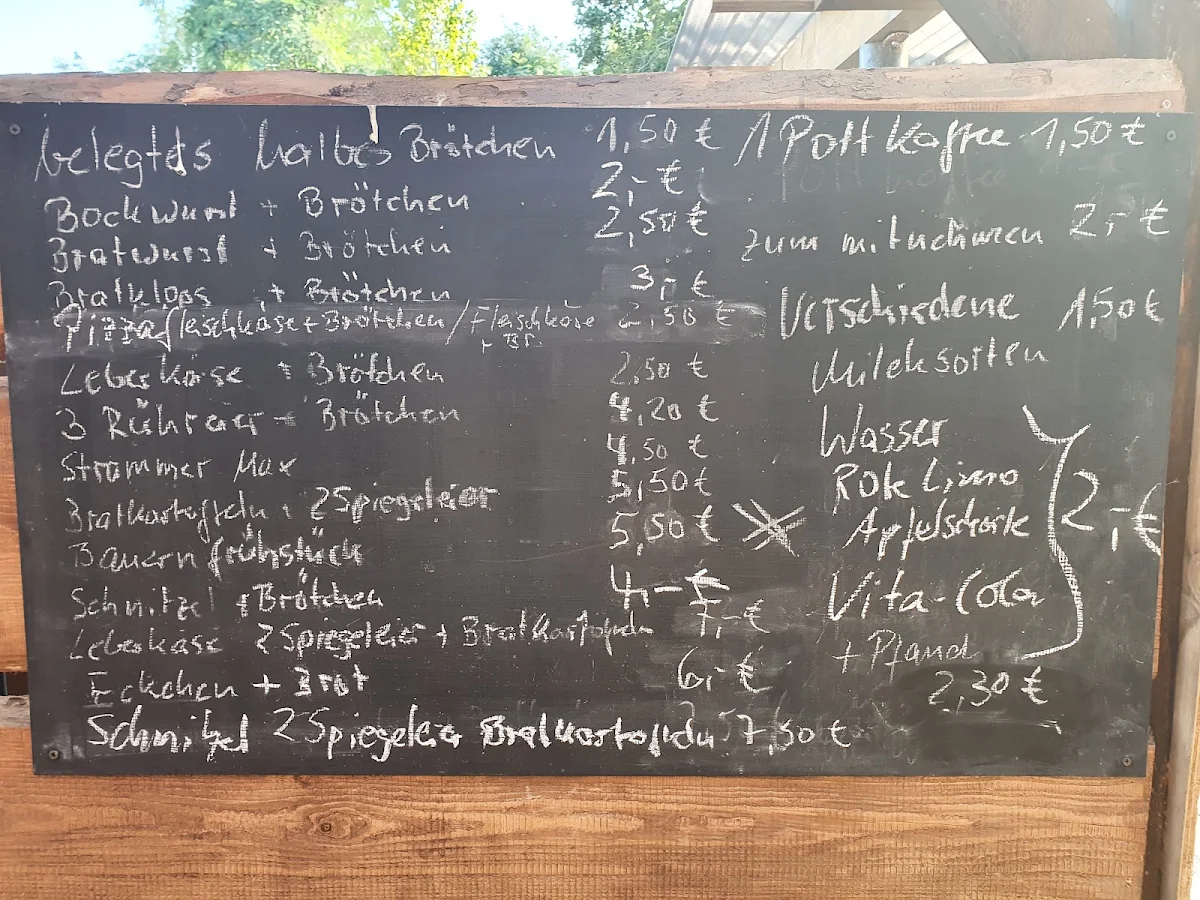 belegtes halbes Brötchen 1,50 €
Bockwurst + Brötchen 2,- €
Bratwurst + Brötchen 2,50 €
Bratklops + Brötchen 3,- €
Pizzafleischkäse + Brötchen / Fleischkäse + Br. 2,50 €
Leberkäse + Brötchen 2,50 €
3 Rühreier + Brötchen 4,20 €
Strammer Max 4,50 €
Bratkartoffeln + 2 Spiegeleier 5,50 €
Bauernfrühstück 5,50 €
Schnitzel + Brötchen 4,- €
Leberkäse 2 Spiegeleier + Bratkartoffeln 7,- €
Eckchen + Brot 6,- €
Schnitzel 2 Spiegeleier Bratkartoffeln 7,50 €
1 Pott Kaffee 1,50 €
zum 2,- €
Verschiedene 1,50 €
Milchsorten
Wasser
Rote Limo
Apfelschorle 2,- €
Vita-Cola
+ Pfand
2,30 €